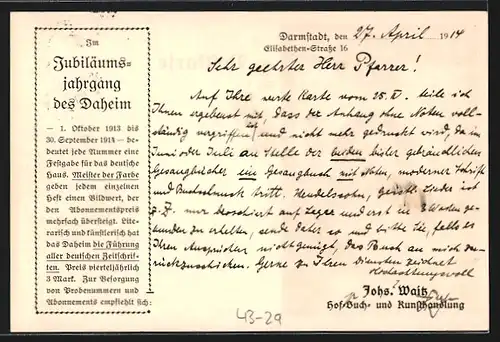 Im
Jubiläums-
jahrgang
des Daheim
— 1. Oktober 1913 bis
30. September 1914 — be-
deutet jede Nummer eine
Festgabe für das deutsche
Haus. Meister der Farbe
geben jedem einzelnen
Heft einen Bildwert, der
den Abonnementspreis
mehrfach übersteigt. Lite-
rarisch und künstlerisch hat
das Daheim die Führung
aller deutschen Zeitschrif-
ten. Preis vierteljährlich
3 Mark. Zur Besorgung
von Probenummern und
Abonnements empfiehlt sich:
Darmstadt, den 27. April 1914
Elisabethen-Straße 16
Sehr geehrter Herr Pfarrer!
Auf Ihre werte Karte vom 25. teile ich
Ihnen ergebenst mit, dass der Anhang ohne Noten voll-
ständig vergriffen ist und nicht mehr gedruckt wird, da im
Juni oder Juli an Stelle der beiden bisher gebräuchlichen
Gesangbücher ein Gesangbuch mit Noten, moderner Schrift
und Buchschmuck tritt. Mendelssohn, geistl. Lieder ist
z. Z. nur broschiert auf Lager und erst in 3 Wochen ge-
bunden zu erhalten, sende daher so und bitte Sie, falls es
Ihren Ansprüchen nicht genügt, das Buch an mich zu-
rückzuschicken. Gerne zu Ihren Diensten zeichnet
Hochachtungsvoll
Johs. Waitz
Hof-Buch- und Kunsthandlung
43-29